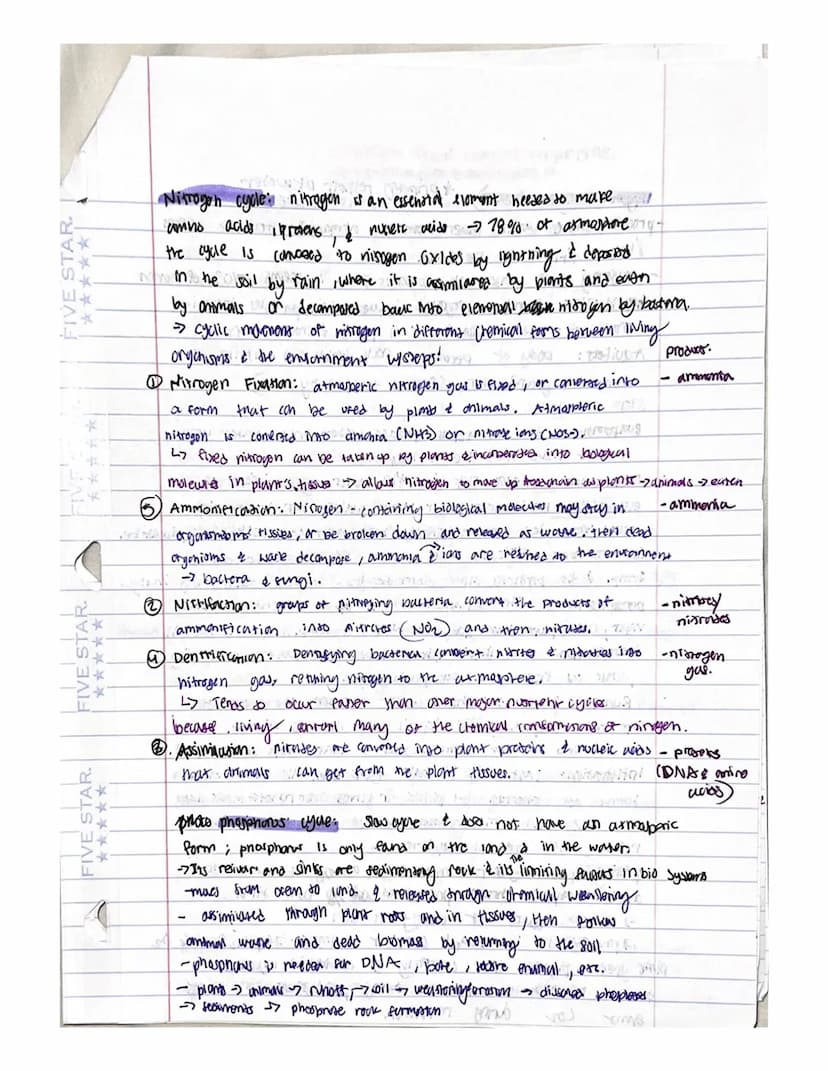 Nitrogen cycle: nitrogen is an essential element needed to make
amino acids, proteins, & nucleic acids → 78% of atmosphere
the cycle is converted to nitrogen oxides by lightning & deposited
in the soil by rain, where it is assimilated by plants and eaten
by animals or decomposed back into elemental nitrogen by bacteria.
→ cyclic movement of nitrogen in different chemical forms between living
organisms & the environment
product:
① Nitrogen Fixation: atmospheric nitrogen gas is fixed, or converted into - ammonia
a form that can be used by plants & animals. Atmospheric
nitrogen is converted into amonia (NH3) or nitrate ions (NO3-).
↳ fixed nitrogen can be taken up by plants & incorporated into biological
molecules in plants tissue → allows nitrogen to move up → animals → eaten
⑤ Ammonification: Nitrogen-containing biological molecules may stay in - ammonia
organisms tissues, or be broken down and released as waste. then dead
organisms & waste decompose, ammonia & ions are returned to the environment
→ bacteria & fungi.
② Nitrification: groups of nitrifying bacteria convert the products of - nitrites/
ammonification into nitrites (NO2) and then nitrates. nitrates
④ Denitrification: Denitrifying bacteria convert nitrites & nitrates into - nitrogen
nitrogen gas, returning nitrogen to the atmosphere. gas.
↳ Tends to occur faster than other major nutrient cycles
because living control many of the chemical transformations of nitrogen.
③. Assimilation: nitrates are converted into plant proteins & nucleic acids - proteins
that animals can get from the plant tissues. (DNA & amino
acids)
phosphorus cycle: slow cycle & does not have an atmospheric
form; phosphorus is only found on the land & in the water.
→ Its reservoir and sinks are sedimentary rock & its the limiting factors in bio systems
- moves from ocean to land & released through chemical weathering
- assimilated through plant roots and in tissues, then
animal waste and dead biomass by returning to the soil
- phosphorus is needed for DNA, bone, enamel, etc.
- plants → animals → runoff, → soil → weathering/erosion → dissolved phosphates
→ sediments → phosphate rock formation
FIVE STAR.
FIVE STAR.
FIVE STAR.